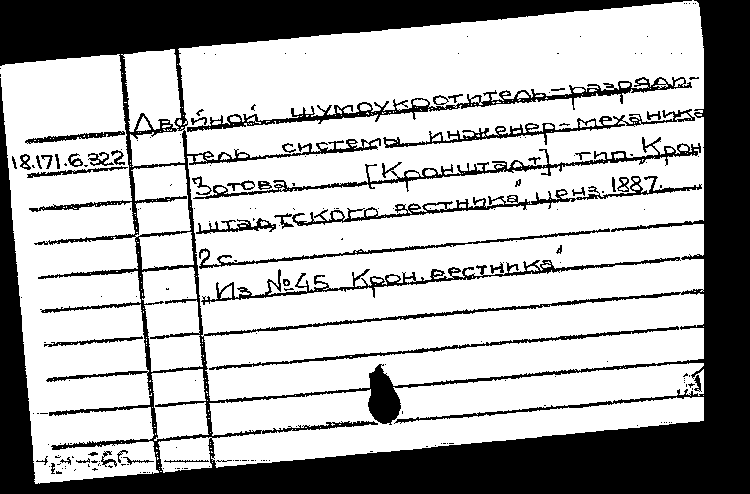 Двойной шумоукротитель=разряди-
18.171.6.322 тель системы инженер=механика
Зотова. [Кронштадт], тип. Крон
штадтского вестника", ценз. 1887.
2 с.
„Из №45 Крон. вестника"